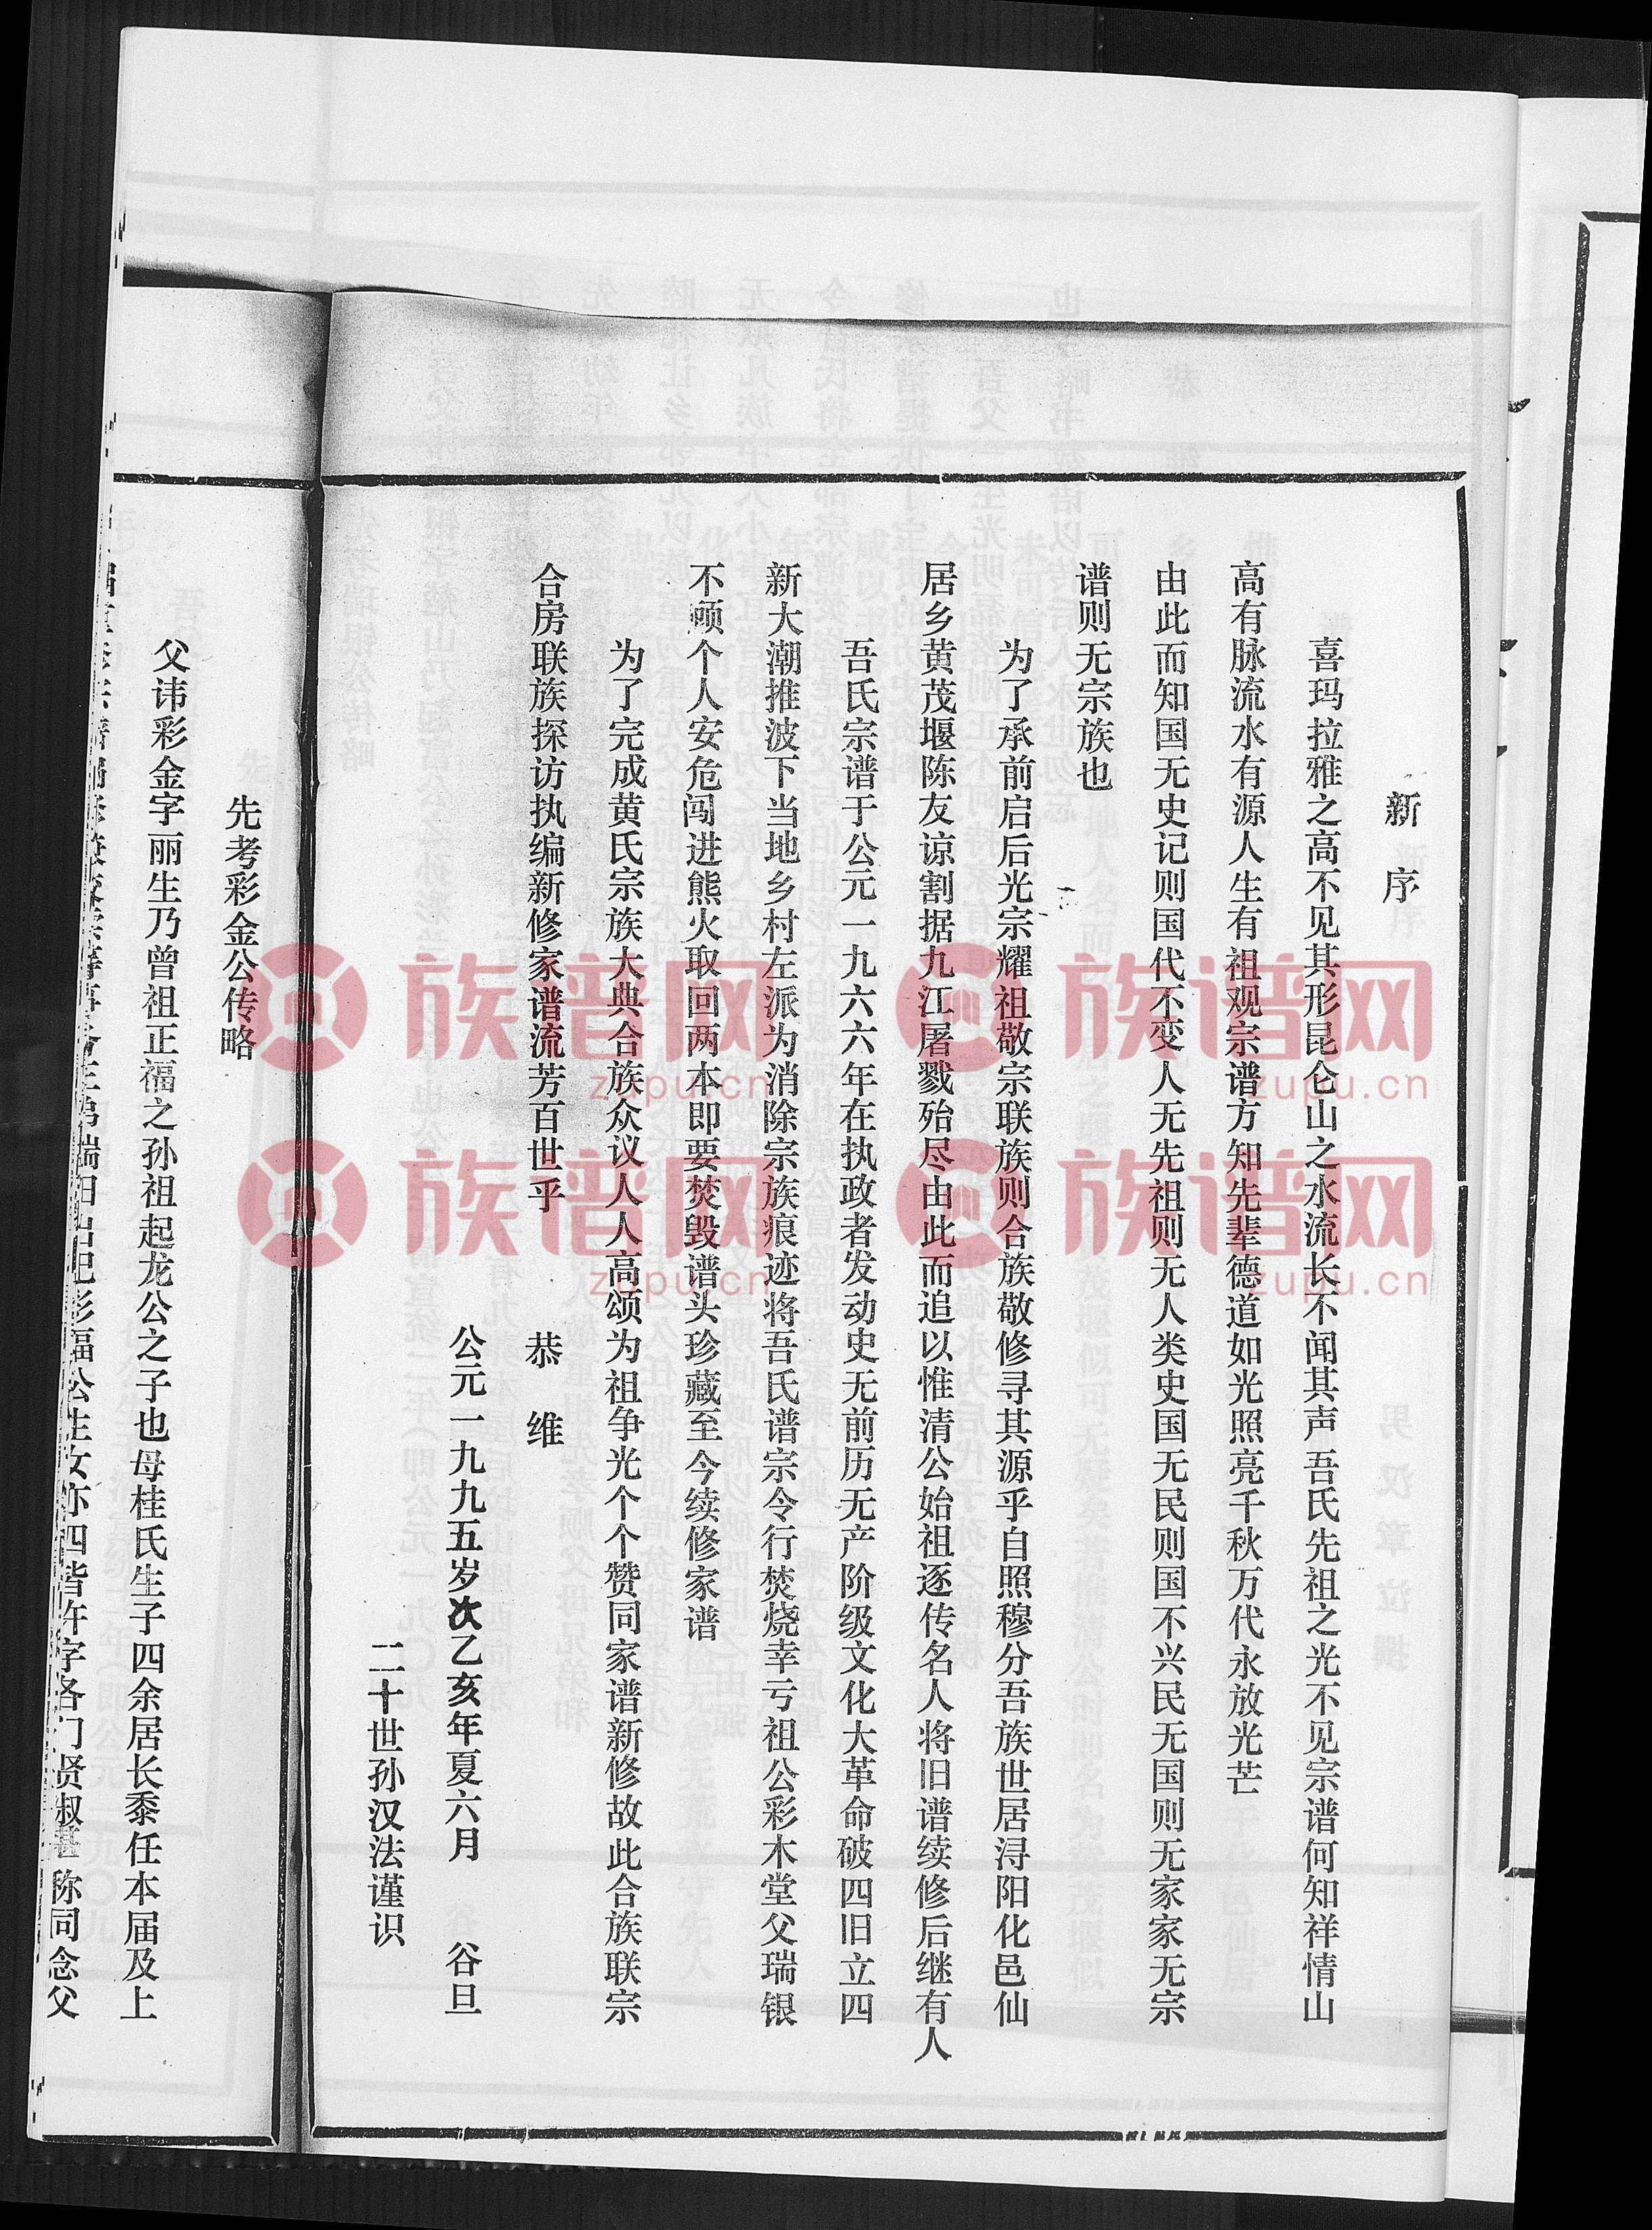 新序
喜玛拉雅之高不见其形昆仑山之水流长不闻其声吾氏先祖之光不见宗谱何知祥情山
高有脉流水有源人生有祖观宗谱方知先辈德道如光照亮千秋万代永放光芒
由此而知国无史记则国代不变人无先祖则无人类史国无民则国不兴民无国则无家家无宗
谱则无宗族也
为了承前启后光宗耀祖敬宗联族则合族敬修寻其源乎自照穆分吾族世居浔阳化邑仙
居乡黄茂堰陈友谅割据九江屠戮殆尽由此而追以惟清公始祖逐传名人将旧谱续修后继有人
吾氏宗谱于公元一九六六年在执政者发动史无前历无产阶级文化大革命破四旧立四
新大潮推波下当地乡村左派为消除宗族痕迹将吾氏谱宗令行焚烧幸亏祖公彩木堂父瑞银
不顾个人安危闯进熊火取回两本即要焚毁谱头珍藏至今续修家谱
为了完成黄氏宗族大典合族众议人人高颂为祖争光个个赞同家谱新修故此合族联宗
合房联族探访执编新修家谱流芳百世乎
恭维
公元一九九五岁次乙亥年夏六月 谷旦
二十世孙汉法谨识
先考彩金公传略
父讳彩金字丽生乃曾祖正福之孙祖起龙公之子也母桂氏生子四余居长黍任本届及上
彩福公生女亦四皆许字各门贤淑甚称同念父
族谱网
zupu.cn
族谱网
zupu.cn
族谱网
zupu.cn
族谱网
zupu.cn